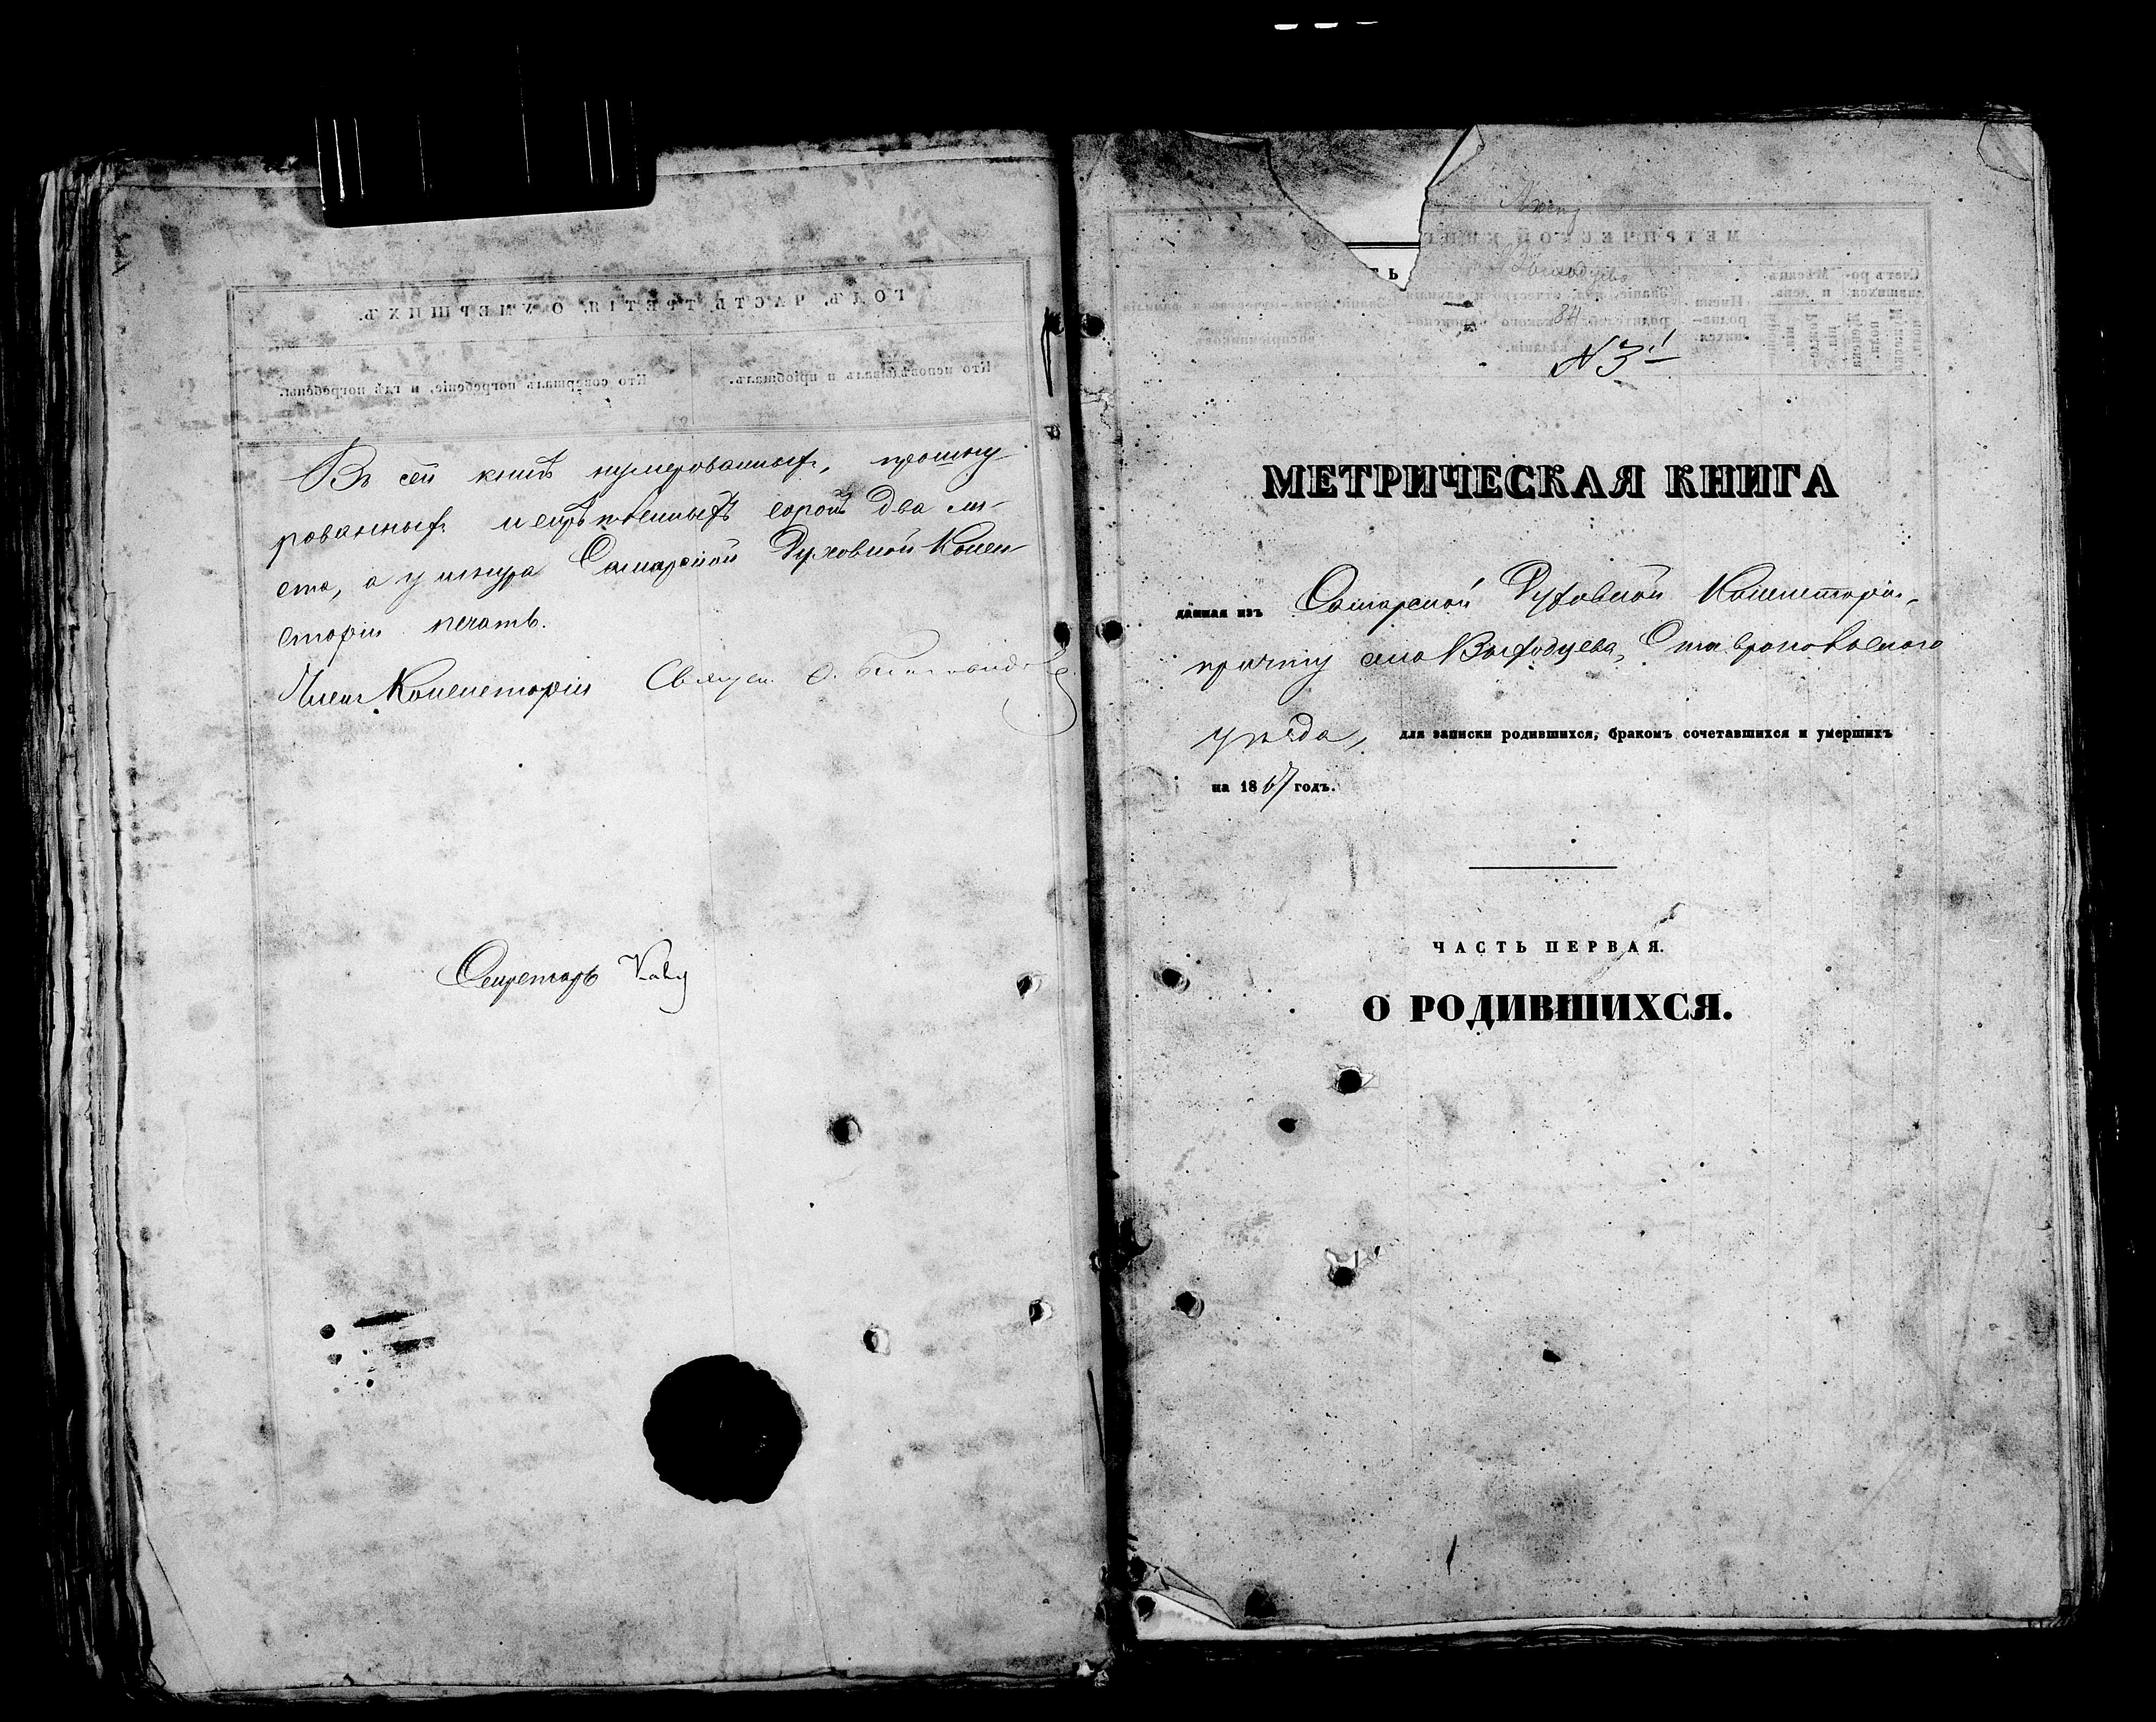 Въ сей книгѣ нумерованныхъ, прошну-
рованныхъ и скрѣпленныхъ сорокъ два ли-
ста, а у шнура Самарской Духовной Консис-
торіи печать.
Членъ Консисторіи Священ.
Секретарь
№ 31
МЕТРИЧЕСКАЯ КНИГА
данная изъ Самарской Духовной Консисторіи,
причту села Выходцева, Ставропольскаго
уѣзда, для записки родившихся, бракомъ сочетавшихся и умершихъ
на 1867 годъ.
ЧАСТЬ ПЕРВАЯ.
О РОДИВШИХСЯ.